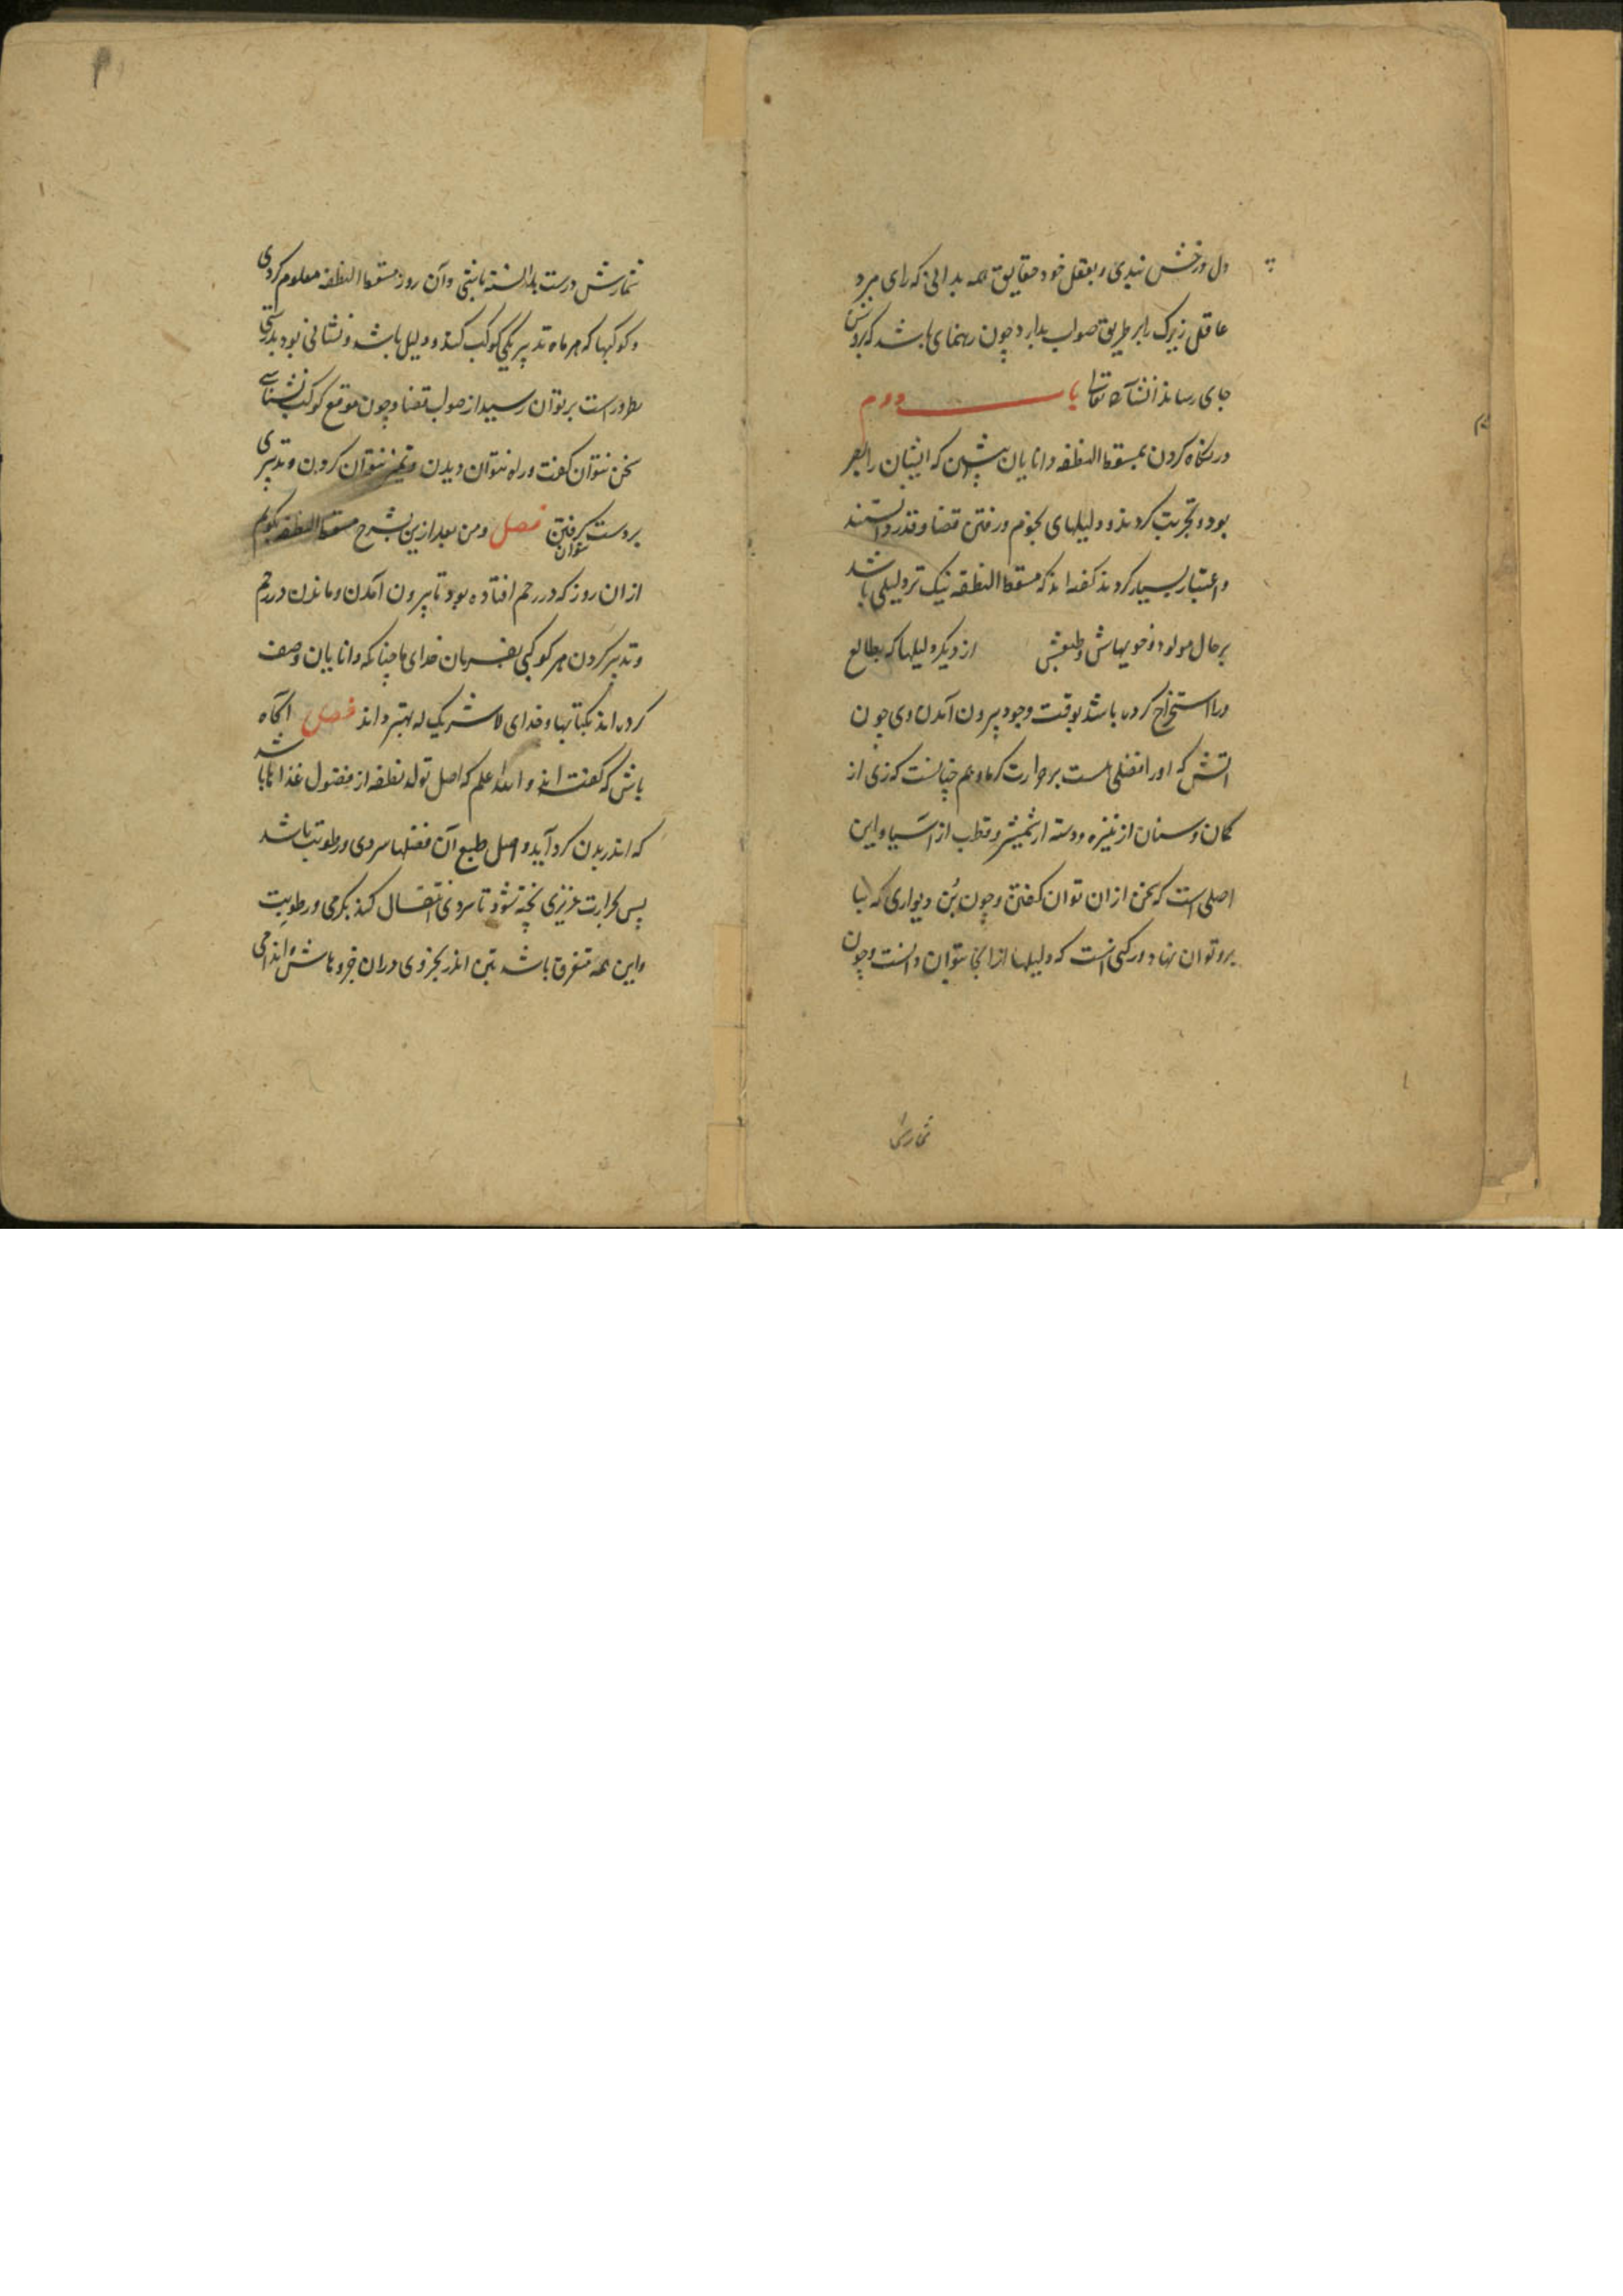 دل درخش نبدی و بعقل خود حقایق همه بدانی که رای مرد
عاقل زیرک را بر طریق صواب بدارد چون رهنمای باشد که بزودش
جای رساند انشاالله تعالی باب دوم
در نگاه کردن بمسقط النطفه دانایان پیشین که ایشان را بصر
بود و تجربت کردند و دلیلهای نجوم و رفتن قضا و قدر دانستند
و اعتبار بسیار کردند گفته اند که مسقط النطفه نیک تر دلیلی باشد
بر حال مولود و خویهاش و طبعش از دیگر دلیلها که بطالع
ورا استخراج کرده باشد بوقت وجود بیرون آمدن وی چون
آتش که او را فضلی هست بر حرارت گرما و هم چنانست که زی از
کمان و سنان از نیزه و دسته از شمشیر و قطب از آسیا و این
اصلی است که سخن از آن توان گفتن و چون بُن دیواری که بنا
برو توان نهاد و رکنی است که دلیلها از آنجا بتوان دانست و چون
شمارش
شمارش درست بدانسته باشی و آن روز مسقط النطفه معلوم کردی
و کوکبها که هر ماه تدبیر یکی کوکب کند و دلیل باشد و نشانی بود بدرستی
بر توان رسید از صواب قضا و چون موقع کوکب نشناسی
سخن نتوان گفت و راه نتوان دیدن و تمیز نتوان کردن و تدبیری
بر دست نتوان گرفتن فصل و من بعد ازین شرح مسقط النطفه بگویم
از آن روز که در رحم افتاده بود تا بیرون آمدن و ماندن در رحم
و تدبیر کردن هر کوکبی بفرمان خدای ما چنانکه دانایان وصف
کرده اند بکتابها و خدای لا شریک له بهتر داند فصل آگاه
باش که گفته اند و الله اعلم که اصل تولد نطفه از فضول غذاها باشد
که اندر بدن گرد آید و اصل طبع آن فضلها سردی و رطوبت باشد
پس بحرارت غریزی پخته شود تا سردی انتقال کند بگرمی و رطوبت
و این همه متفرق باشد بتن اندر بجزوی در آن جزوهاش و اندامی